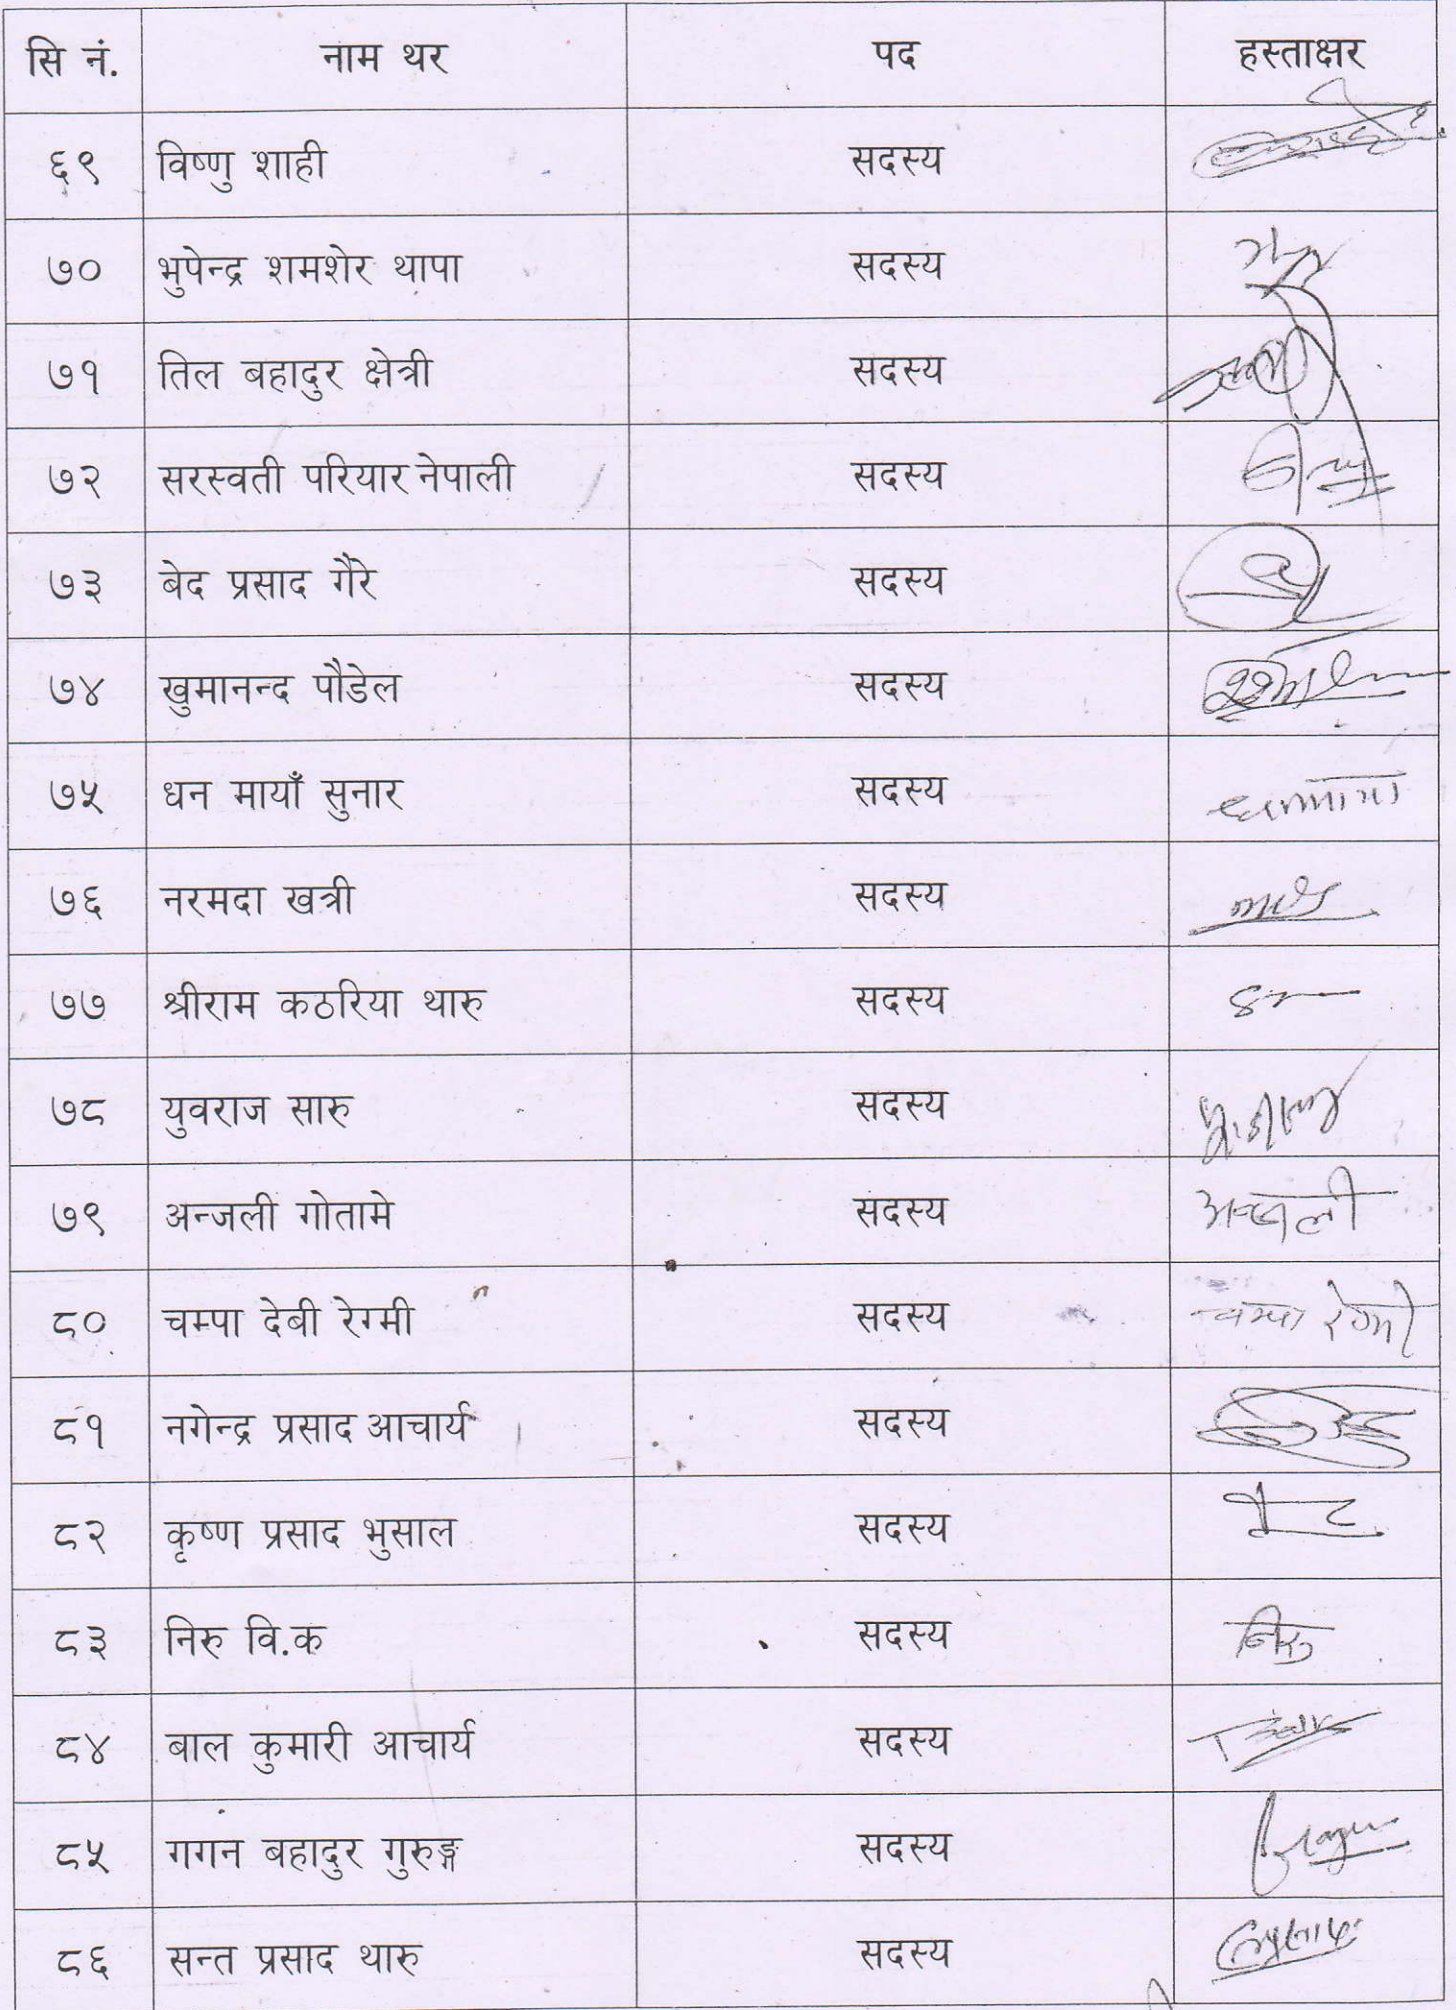 सि नं. नाम थर पद हस्ताक्षर
६९ विष्णु शाही सदस्य
७० भुपेन्द्र शमशेर थापा सदस्य
७१ तिल बहादुर क्षेत्री सदस्य
७२ सरस्वती परियार नेपाली सदस्य
७३ बेद प्रसाद गैरे सदस्य
७४ खुमानन्द पौडेल सदस्य
७५ धन मायाँ सुनार सदस्य
७६ नरमदा खत्री सदस्य
७७ श्रीराम कठरिया थारु सदस्य
७८ युवराज सारु सदस्य
७९ अन्जली गोतामे सदस्य अन्जली
८० चम्पा देबी रेग्मी सदस्य चम्पा रेग्मी
८१ नगेन्द्र प्रसाद आचार्य सदस्य
८२ कृष्ण प्रसाद भुसाल सदस्य
८३ निरु वि.क सदस्य निरु
८४ बाल कुमारी आचार्य सदस्य
८५ गगन बहादुर गुरुङ्ग सदस्य
८६ सन्त प्रसाद थारु सदस्य